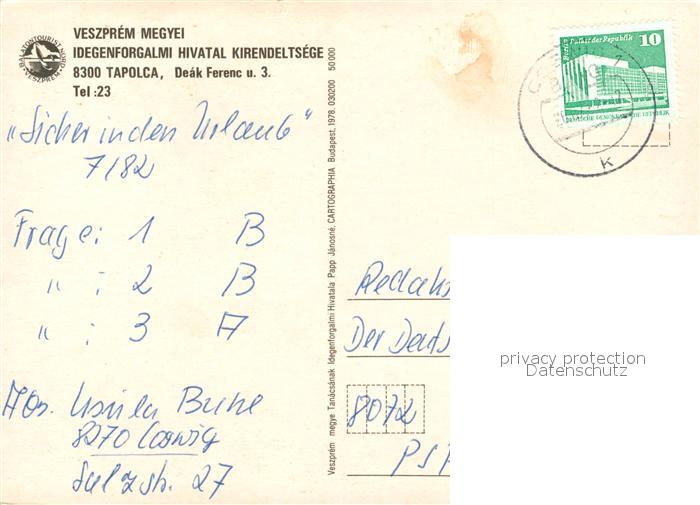 VESZPRÉM MEGYEI
IDEGENFORGALMI HIVATAL KIRENDELTSÉGE
8300 TAPOLCA, Deák Ferenc u. 3.
Tel :23
BALATONTOURIST NORD
VESZPRÉM
„Sicher in den Urlaub“
7/82
Frage: 1 B
" : 2 B
" : 3 A
Abs.
8270 Coswig
Salzstr. 27
Veszprém megye Tanácsának Idegenforgalmi Hivatala Papp Jánosné, CARTOGRAPHIA Budapest, 1978. 030200 50 000
Berlin, Palast der Republik
10
DEUTSCHE DEMOKRATISCHE REPUBLIK
k
Redaks
Der Deuts
8072
PSF
privacy protection
Datenschutz